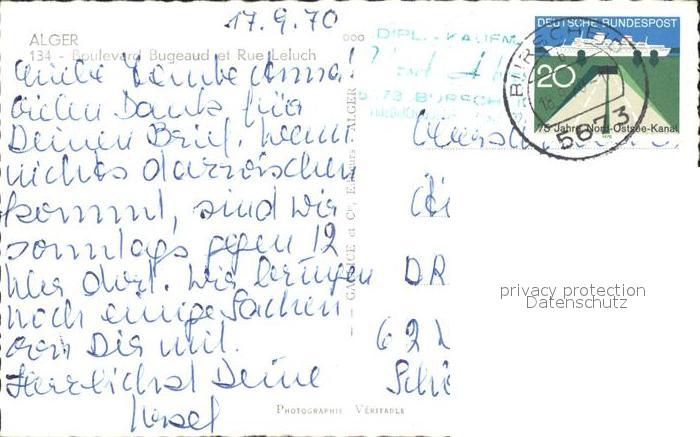 17.9.70
ALGER
134 - Boulevard Bugeaud et Rue Leluch
Vielen Dank für
Deinen Brief. Wenn
nichts dazwischen
kommt, sind wir
sonntags gegen 12
Uhr dort. Wir bringen
noch einige Sachen
von Dir mit.
Herzlichst Deine
PHOTOGRAPHIE VÉRITABLE
ALGER
DIPL.-KAUFM.
BURSCH
DEUTSCHE BUNDESPOST
20
75 Jahre Nord-Ostsee-Kanal
BURSCHEID
5673
DR
62
privacy protection
Datenschutz